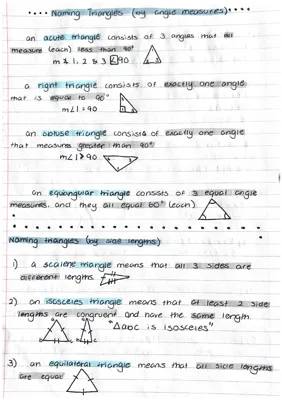 Naming Triangles (by angle measures)
an acute triangle consists of 3 angles that all
measure (each) less than 90°
m∠1, 2 & 3 ∠ 90
a right triangle consists of exactly one angle
that is equal to 90°
m∠1 = 90
an obtuse triangle consists of exactly one angle
that measures greater than 90°
m∠1 > 90
an equiangular triangle consists of 3 equal angle
measures, and they all equal 60° (each)
Naming triangles (by side lengths)
1) a scalene triangle means that all 3 sides are
different lengths
2) an isosceles triangle means that at least 2 side
lengths are congruent and have the same length
"△abc is isosceles"
3) an equilateral triangle means that all side lengths
are equal